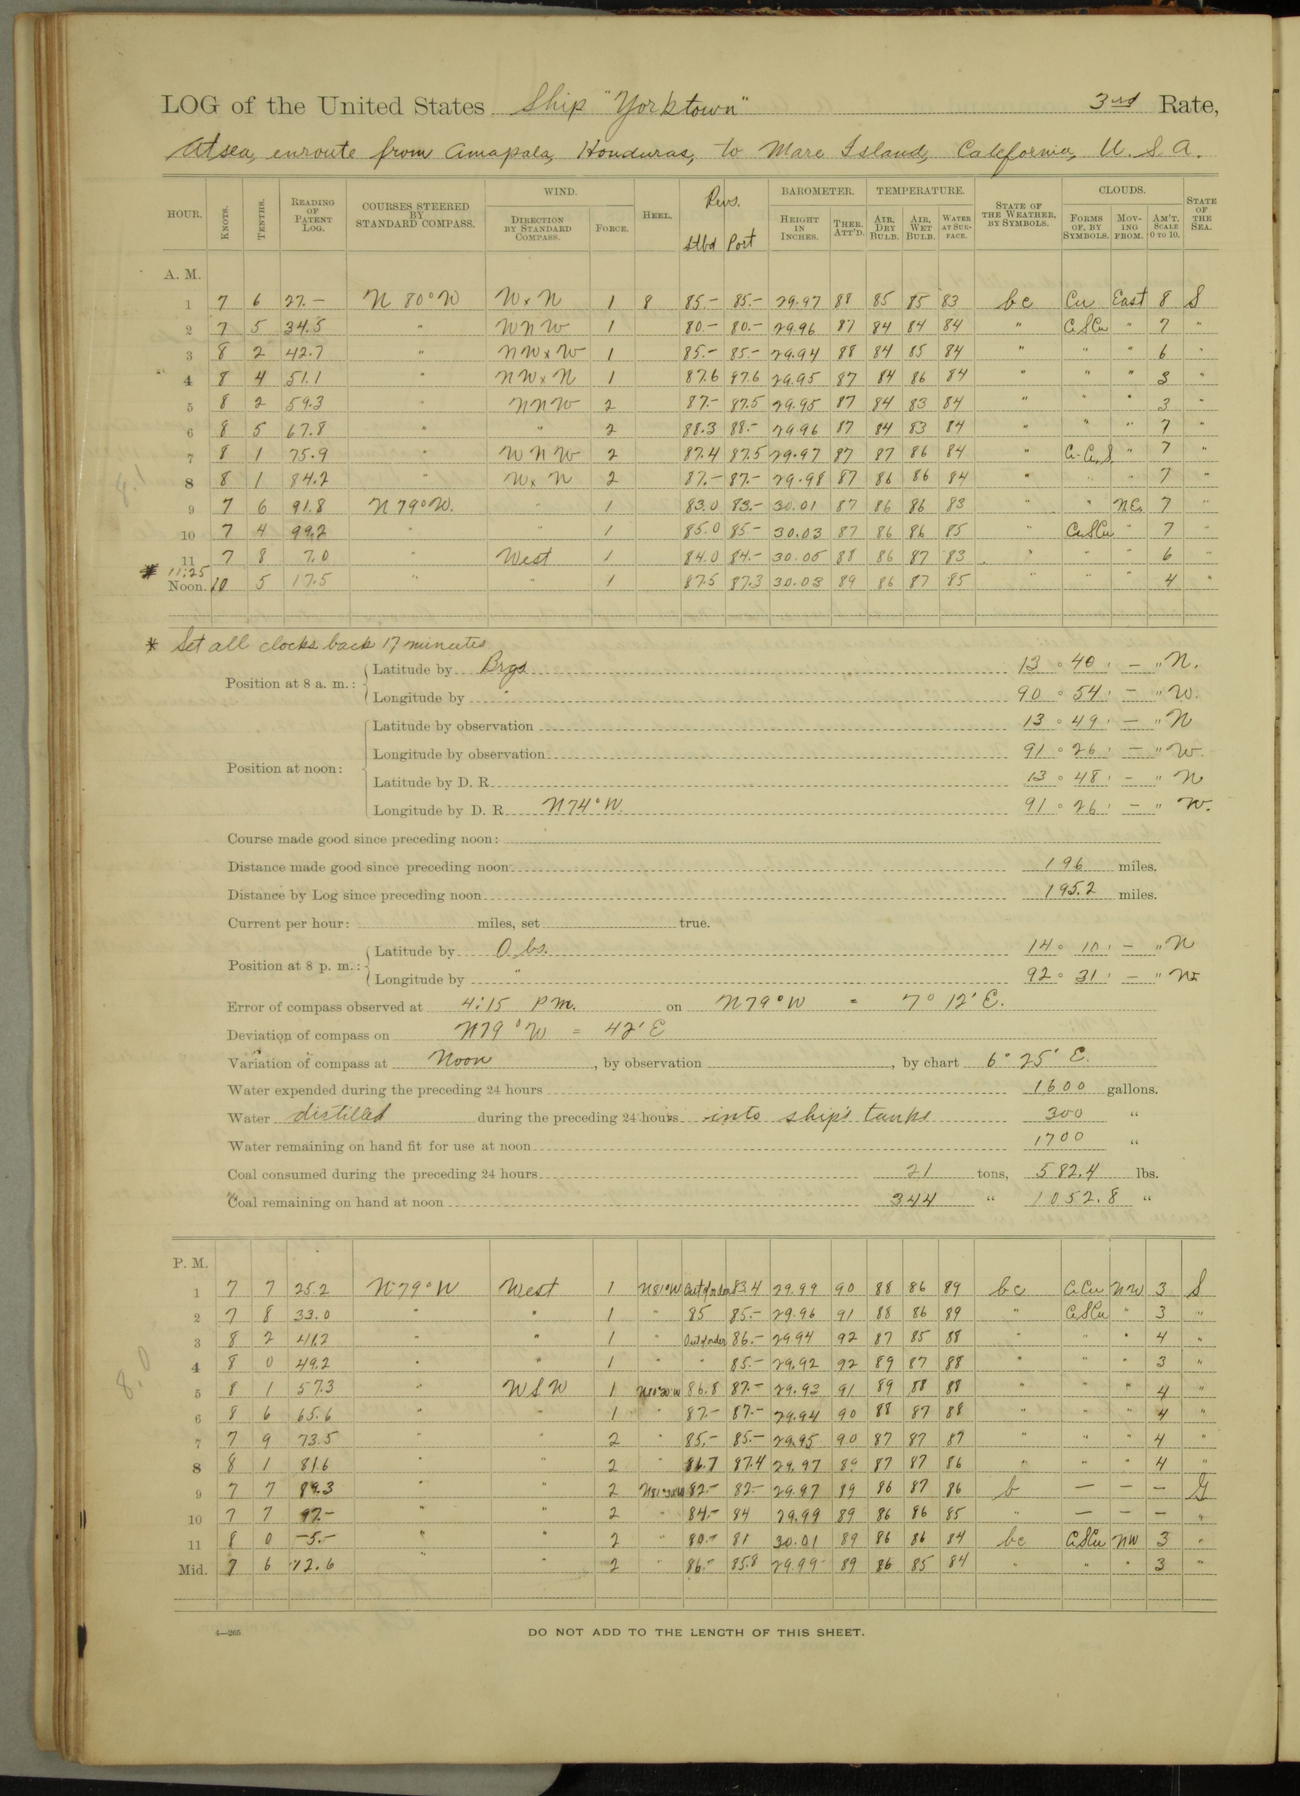 LOG of the United States Ship "Yorktown" 3rd Rate,
At sea, enroute from Amapala, Honduras, to Mare Island, California, U. S. A.
HOUR. KNOTS. TENTHS. READING OF PATENT LOG. COURSES STEERED BY STANDARD COMPASS. WIND. DIRECTION BY STANDARD COMPASS. FORCE. HEEL. Revs. Stbd Port BAROMETER. HEIGHT IN INCHES. THER. ATT'D. TEMPERATURE. AIR, DRY BULB. AIR, WET BULB. WATER AT SURFACE. STATE OF THE WEATHER, BY SYMBOLS. CLOUDS. FORMS OF, BY SYMBOLS. MOVING FROM. AM'T. SCALE 0 TO 10. STATE OF THE SEA.
A. M.
1 7 6 27.– N 80° W W x N 1 8 85.– 85.– 29.97 88 85 85 83 bc Cu East 8 S
2 7 5 34.5 " WNW 1 80.– 80.– 29.96 87 84 84 84 " C.S.Cu " 7 "
3 8 2 42.7 " NW x W 1 85.– 85.– 29.94 88 84 85 84 " " " 6 "
4 8 4 51.1 " NW x N 1 87.6 87.6 29.95 87 84 86 84 " " " 3 "
5 8 2 59.3 " NNW 2 87.– 87.5 29.95 87 84 83 84 " " " 3 "
6 8 5 67.8 " " 2 88.3 88.– 29.96 87 84 83 84 " " " 7 "
7 8 1 75.9 " WNW 2 87.4 87.5 29.97 87 87 86 84 " C.-C.S. " 7 "
8 8 1 84.2 " W x N 2 87.– 87.– 29.98 87 86 86 84 " " " 7 "
9 7 6 91.8 N 79° W. " 1 83.0 83.– 30.01 87 86 86 83 " " NE. 7 "
10 7 4 99.2 " " 1 85.0 85– 30.03 87 86 86 85 " C.S.Cu " 7 "
11 7 8 7.0 " West 1 84.0 84.– 30.05 88 86 87 83 " " " 6 "
* 11:25
Noon. 10 5 17.5 " " 1 87.5 87.3 30.03 89 86 87 85 " " " 4 "
* Set all clocks back 17 minutes
Position at 8 a. m.: Latitude by Brgs 13 ° 40 ' – " N.
Longitude by " 90 ° 54 ' – " W.
Position at noon: Latitude by observation 13 ° 49 ' – " N
Longitude by observation 91 ° 26 ' – " W.
Latitude by D. R. 13 ° 48 ' – " N
Longitude by D. R. N 74° W. 91 ° 26 ' – " W.
Course made good since preceding noon:
Distance made good since preceding noon 196 miles.
Distance by Log since preceding noon 195.2 miles.
Current per hour: miles, set true.
Position at 8 p. m.: Latitude by Obs. 14 ° 10 ' – " N
Longitude by " 92 ° 31 ' – " W.
Error of compass observed at 4:15 P.M. on N 79° W = 7° 12' E.
Deviation of compass on N 79° W = 42' E
Variation of compass at Noon, by observation, by chart 6° 25' E.
Water expended during the preceding 24 hours 1600 gallons.
Water distilled during the preceding 24 hours into ship's tanks 300 "
Water remaining on hand fit for use at noon 1700 "
Coal consumed during the preceding 24 hours 21 tons, 582.4 lbs.
Coal remaining on hand at noon 344 " 1052.8 "
P. M.
1 7 7 25.2 N 79° W West 1 N 81° W Out of order 83.4 29.99 90 88 86 89 bc C.Cu NW 3 S
2 7 8 33.0 " " 1 " 85 85.– 29.96 91 88 86 89 " C.S.Cu " 3 "
3 8 2 41.2 " " 1 " Out of order 86.– 29.94 92 87 85 88 " " " 4 "
4 8 0 49.2 " " 1 " " 85.– 29.92 92 89 87 88 " " " 3 "
5 8 1 57.3 " WSW 1 86.8 87.– 29.93 91 89 88 88 " " " 4 "
6 8 6 65.6 " " 1 " 87.– 87.– 29.94 90 88 87 88 " " " 4 "
7 7 9 73.5 " " 2 " 85.– 85.– 29.95 90 87 87 87 " " " 4 "
8 8 1 81.6 " " 2 " 86.7 87.4 29.97 89 87 87 86 " " " 4 "
9 7 7 89.3 " " 2 82.– 82– 29.97 89 86 87 86 b – – – G
10 7 7 97.– " " 2 " 84.– 84 29.99 89 86 86 85 " – – – "
11 8 0 –5.– " " 2 " 80.– 81 30.01 89 86 86 84 bc C.S.Cu NW 3 "
Mid. 7 6 12.6 " " 2 " 86.– 85.8 29.99 89 86 85 84 " " " 3 "
4—265 DO NOT ADD TO THE LENGTH OF THIS SHEET.
8.1
8.0